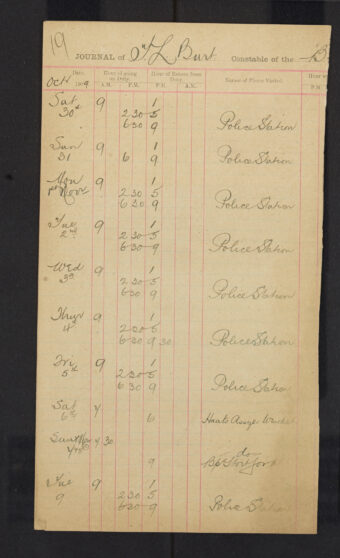 19
JOURNAL of Sgt L Burt Constable of the B
Date. Hour of going on Duty. Hour of Return from Duty. Name of Place Visited. Hour
Oct 1909 A.M. P.M. P.M. A.M. P.M.
Sat 9 1
30th 2 30 5
6 30 9 Police Station
Sun 9 1
31 6 9 Police Station
Mon 9 1
1st Nov 2 30 5
6 30 9 Police Station
Tue 9 1
2nd 2 30 5
6 30 9 Police Station
Wed 9 1
3rd 2 30 5
6 30 9 Police Station
Thur 9 1
4 2 30 5
6 30 9 30 Police Station
Fri 9 1
5th 2 30 5
6 30 9 Police Station
Sat 4
6th 6 Hants Assize
4 30
do
9
Tue 9 1
9 2 30 5
6 30 9 Police Station